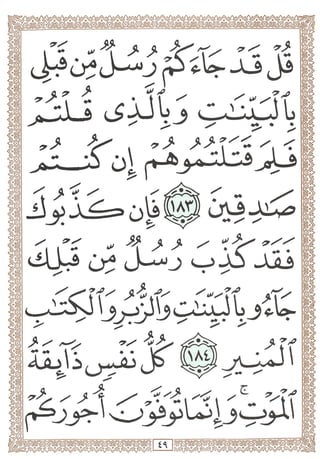 قُلْ قَدْ جَآءَكُمْ رُسُلٌ مِّن قَبْلِى
بِٱلْبَيِّنَٰتِ وَبِٱلَّذِى قُلْتُمْ
فَلِمَ قَتَلْتُمُوهُمْ إِن كُنتُمْ
صَٰدِقِينَ ١٨٣ فَإِن كَذَّبُوكَ
فَقَدْ كُذِّبَ رُسُلٌ مِّن قَبْلِكَ
جَآءُو بِٱلْبَيِّنَٰتِ وَٱلزُّبُرِ وَٱلْكِتَٰبِ
ٱلْمُنِيرِ ١٨٤ كُلُّ نَفْسٍ ذَآئِقَةُ
ٱلْمَوْتِ ۗ وَإِنَّمَا تُوَفَّوْنَ أُجُورَكُمْ
٤٩